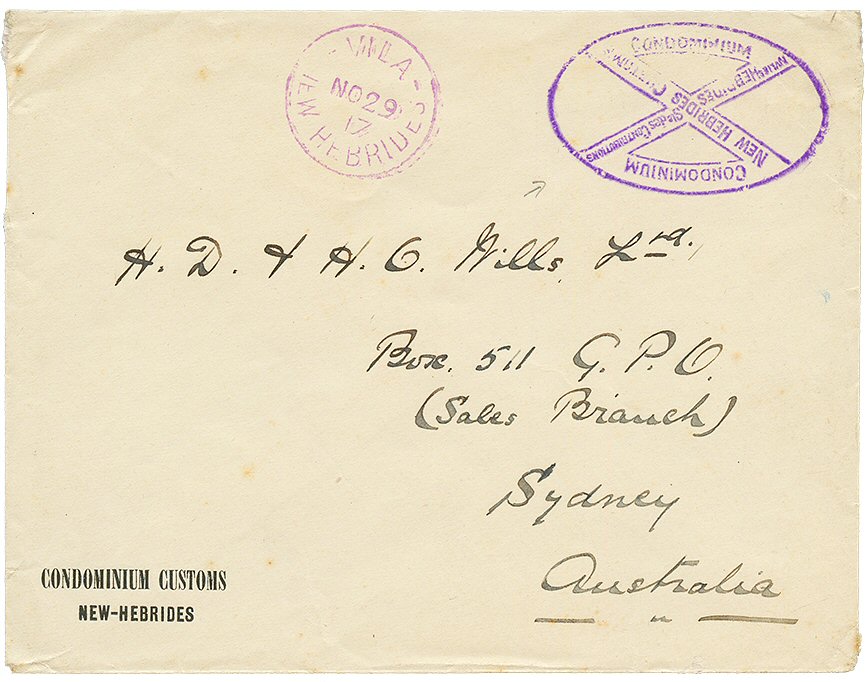 VILA
NO 29
17
NEW HEBRIDES
CONDOMINIUM
NEW HEBRIDES CUSTOMS
NEW HEBRIDES
CONDOMINIUM
H. D. & H. O. Wills, Ltd.,
Box. 511 G. P. O.
(Sales Branch)
Sydney
Australia
CONDOMINIUM CUSTOMS
NEW-HEBRIDES